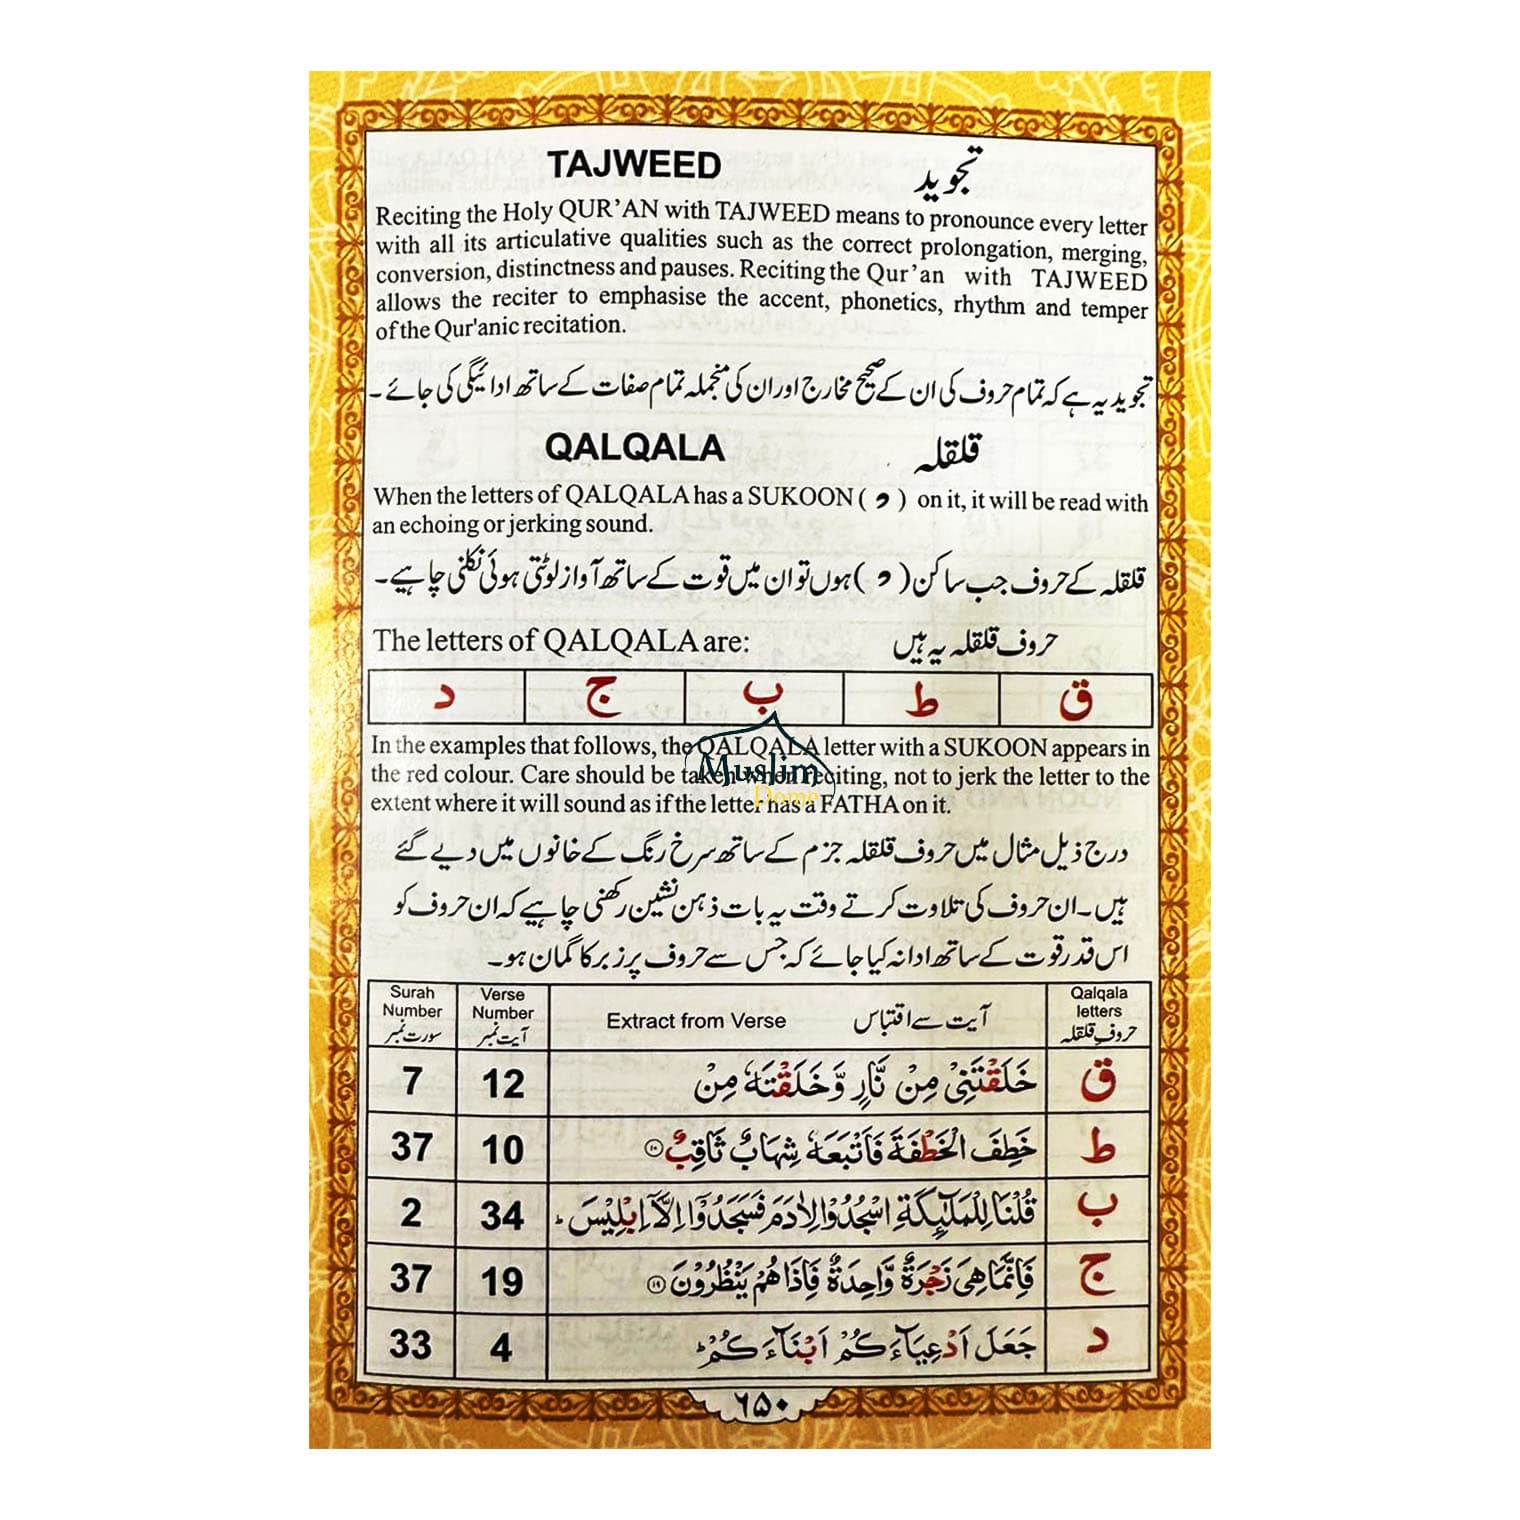 TAJWEED تجوید
Reciting the Holy QUR’AN with TAJWEED means to pronounce every letter
with all its articulative qualities such as the correct prolongation, merging,
conversion, distinctness and pauses. Reciting the Qur’an with TAJWEED
allows the reciter to emphasise the accent, phonetics, rhythm and temper
of the Qur'anic recitation.
تجوید یہ ہے کہ تمام حروف کی ان کے صحیح مخارج اور ان کی منجملہ تمام صفات کے ساتھ ادائیگی کی جائے۔
QALQALA قلقلہ
When the letters of QALQALA has a SUKOON ( ْ ) on it, it will be read with
an echoing or jerking sound.
قلقلہ کے حروف جب ساکن ( ْ ) ہوں تو ان میں قوت کے ساتھ آواز لوٹتی ہوئی نکلنی چاہیے۔
The letters of QALQALA are: حروف قلقلہ یہ ہیں
ق ط ب ج د
In the examples that follows, the QALQALA letter with a SUKOON appears in
the red colour. Care should be taken when reciting, not to jerk the letter to the
extent where it will sound as if the letter has a FATHA on it.
Muslim
Dome
درج ذیل مثال میں حروف قلقلہ جزم کے ساتھ سرخ رنگ کے خانوں میں دیے گئے
ہیں۔ ان حروف کی تلاوت کرتے وقت یہ بات ذہن نشین رکھنی چاہیے کہ ان حروف کو
اس قدر قوت کے ساتھ ادا نہ کیا جائے کہ جس سے حروف پر زبر کا گمان ہو۔
Surah Number سورت نمبر Verse Number آیت نمبر Extract from Verse آیت سے اقتباس Qalqala letters حروفِ قلقلہ
7 12 خَلَقْتَنِیْ مِنْ نَّارٍ وَّ خَلَقْتَهٗ مِنْ ق
37 10 خَطِفَ الْخَطْفَةَ فَاَتْبَعَهٗ شِهَابٌ ثَاقِبٌ ۝۱۰ ط
2 34 قُلْنَا لِلْمَلٰٓىِٕكَةِ اسْجُدُوْا لِاٰدَمَ فَسَجَدُوْۤا اِلَّاۤ اِبْلِیْسَ ؕ ب
37 19 فَاِنَّمَا هِیَ زَجْرَةٌ وَّاحِدَةٌ فَاِذَا هُمْ یَنْظُرُوْنَ ۝۱۹ ج
33 4 جَعَلَ اَدْعِیَآءَكُمْ اَبْنَآءَكُمْ ؕ د
٦۵۰